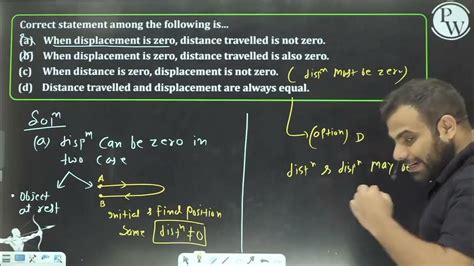 Correct statement among the following is...
(a) When displacement is zero, distance travelled is not zero.
(b) When displacement is zero, distance travelled is also zero.
(c) When distance is zero, displacement is not zero. ( dispᵐ must be zero)
(d) Distance travelled and displacement are always equal.
PW
Solⁿ
(a) dispᵐ can be zero in
two case
• Object
at rest
A
B
initial & final position
Same distⁿ ≠ 0
(option) D
distⁿ & dispⁿ may be